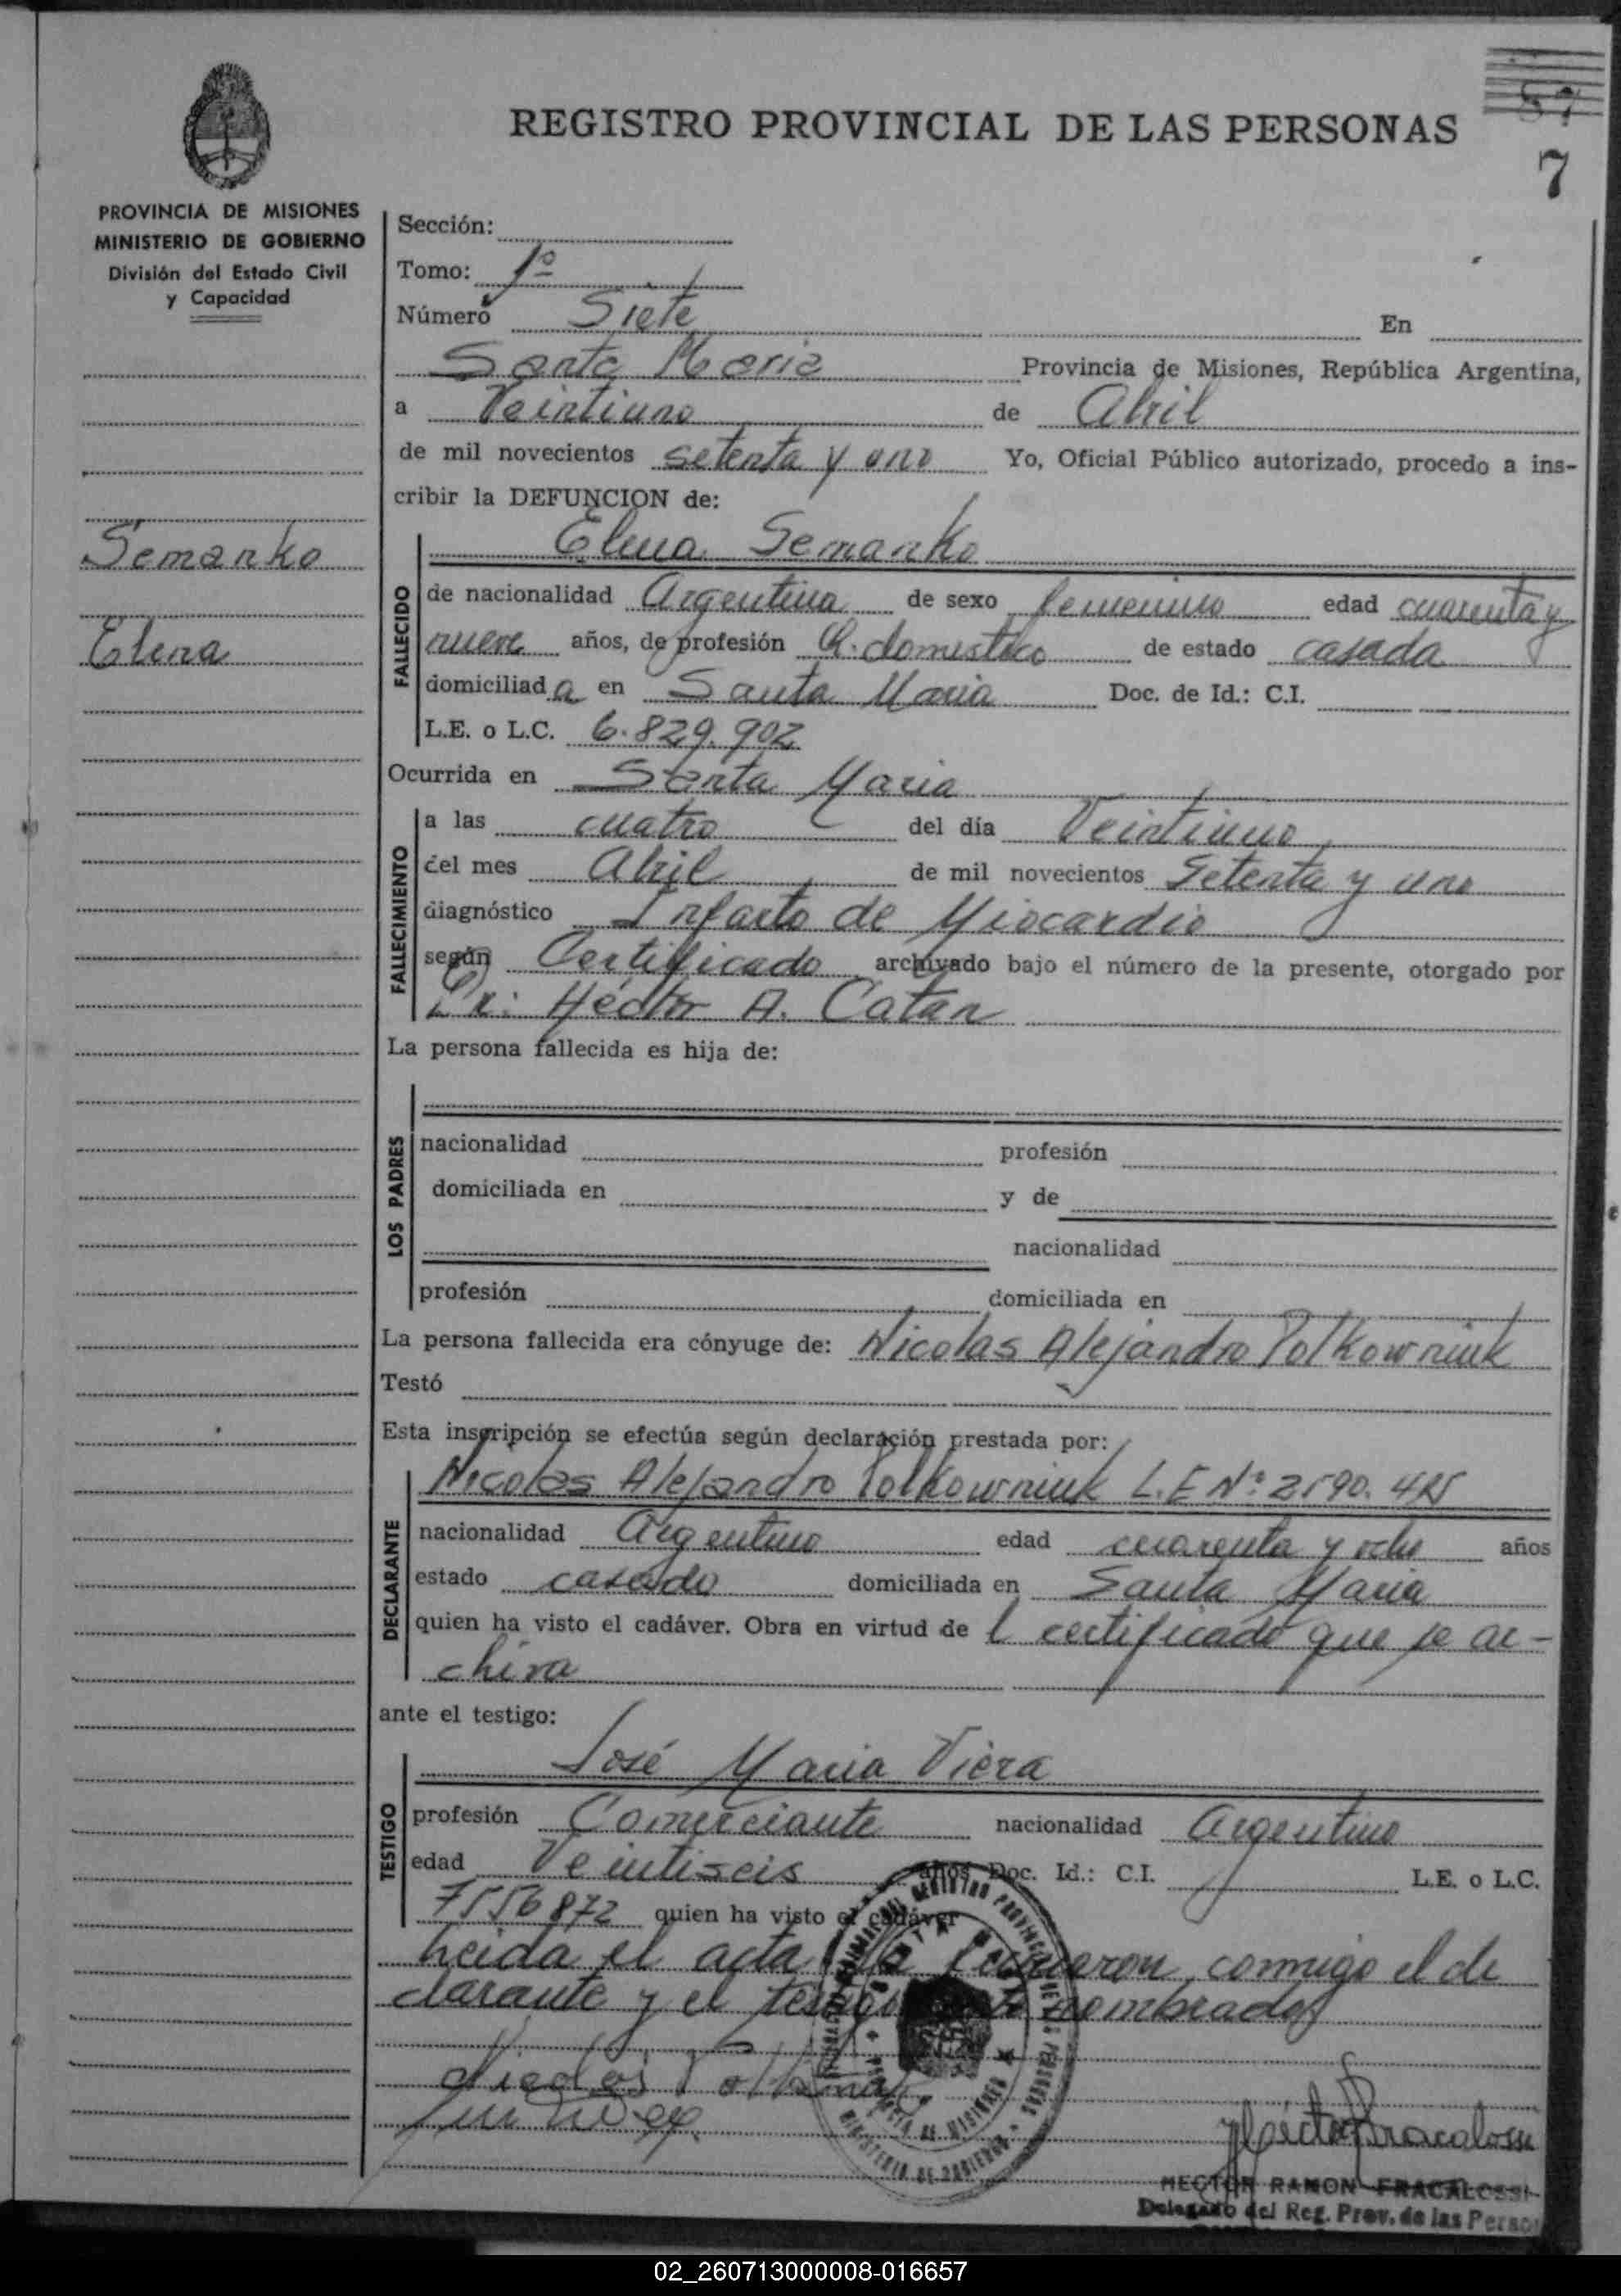 REGISTRO PROVINCIAL DE LAS PERSONAS
57
7
PROVINCIA DE MISIONES
MINISTERIO DE GOBIERNO
División del Estado Civil
y Capacidad
Semanko
Elena
Sección:
Tomo: 1º
Número Siete En
Santa Maria Provincia de Misiones, República Argentina,
a Veintiuno de Abril
de mil novecientos setenta y uno Yo, Oficial Público autorizado, procedo a ins-
cribir la DEFUNCION de:
FALLECIDO
Elena Semanko
de nacionalidad Argentina de sexo femenino edad cuarenta y
nueve años, de profesión Q. domestico de estado casada
domiciliad a en Santa Maria Doc. de Id.: C.I.
L.E. o L.C. 6.829.902
Ocurrida en Santa Maria
FALLECIMIENTO
a las cuatro del día Veintiuno
del mes Abril de mil novecientos Setenta y uno
diagnóstico Infarto de Miocardio
según Certificado archivado bajo el número de la presente, otorgado por
Dr: Héctor A. Catan
La persona fallecida es hija de:
LOS PADRES
nacionalidad profesión
domiciliada en y de
nacionalidad
profesión domiciliada en
La persona fallecida era cónyuge de: Nicolas Alejandro Polkowniuk
Testó
Esta inscripción se efectúa según declaración prestada por:
DECLARANTE
Nicolas Alejandro Polkowniuk L.E Nº
nacionalidad Argentino edad cuarenta y ocho años
estado casado domiciliada en Santa Maria
quien ha visto el cadáver. Obra en virtud de l certificado que se ar-
chiva
ante el testigo:
TESTIGO
José Maria Viera
profesión Comerciante nacionalidad Argentino
edad Veintiseis años Doc. Id.: C.I. L.E. o L.C.
7556872 quien ha visto el cadáver
Leida el acta la firmaron, conmigo el de
clarante y el testigo nombrados
Nicolás
HECTOR RAMON FRACALOSSI
Delegado del Reg. Prov. de las Perso
02_260713000008-016657